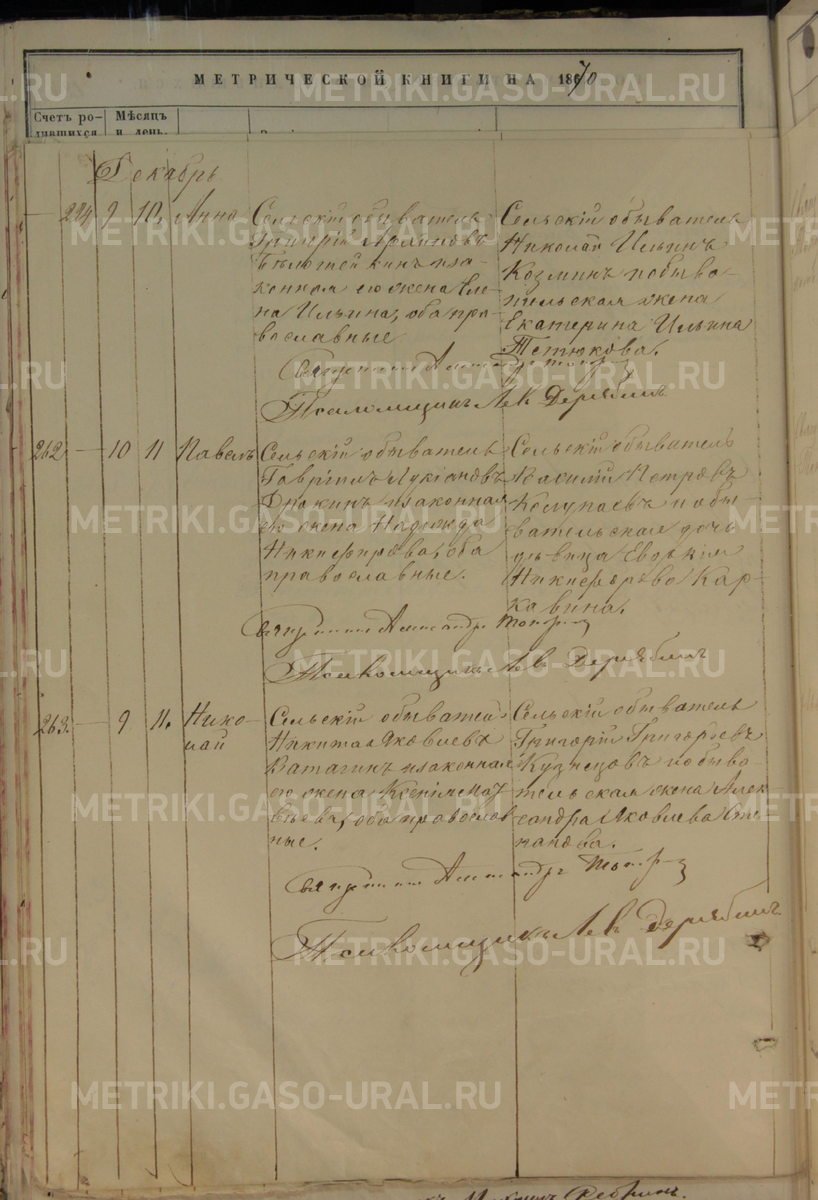 МЕТРИЧЕСКОЙ КНИГИ НА 1870
Счетъ ро- Мѣсяцъ
дившихся и день.
Декабрь
224 9 10. Анна
Сельскій обыватель
Григорій
законная его жена Еле-
на Ильина, оба пра-
вославные
Сельскій обыватель
Николай Ильинъ
Козминъ и обыва-
тельская жена
Екатерина Ильина
Тетюкова.
Священникъ Александръ
Псаломщикъ Левъ Дерябинъ
262 10 11 Павелъ
Сельскій обыватель
Гавріилъ Лукіановъ
и законная
его жена Надежда
Никифорова, оба
православные.
Сельскій обыватель
Василій Петровъ
Колупаевъ и обы-
вательская дочь
дѣвица Евдокія
Никифорова Кар-
кавина.
Священникъ Александръ
Псаломщикъ Левъ Дерябинъ
263. 9 11. Нико-
лай
Сельскій обыватель
Никита Яковлевъ
Ватагинъ и законная
его жена Ксенія Мат-
вѣева, оба православ-
ные.
Сельскій обыватель
Григорій Григорьевъ
Кузнецовъ и обыва-
тельская жена Алек-
сандра Яковлева Сте-
панова.
Священникъ Александръ
Псаломщикъ Левъ Дерябинъ
METRIKI.GASO-URAL.RU